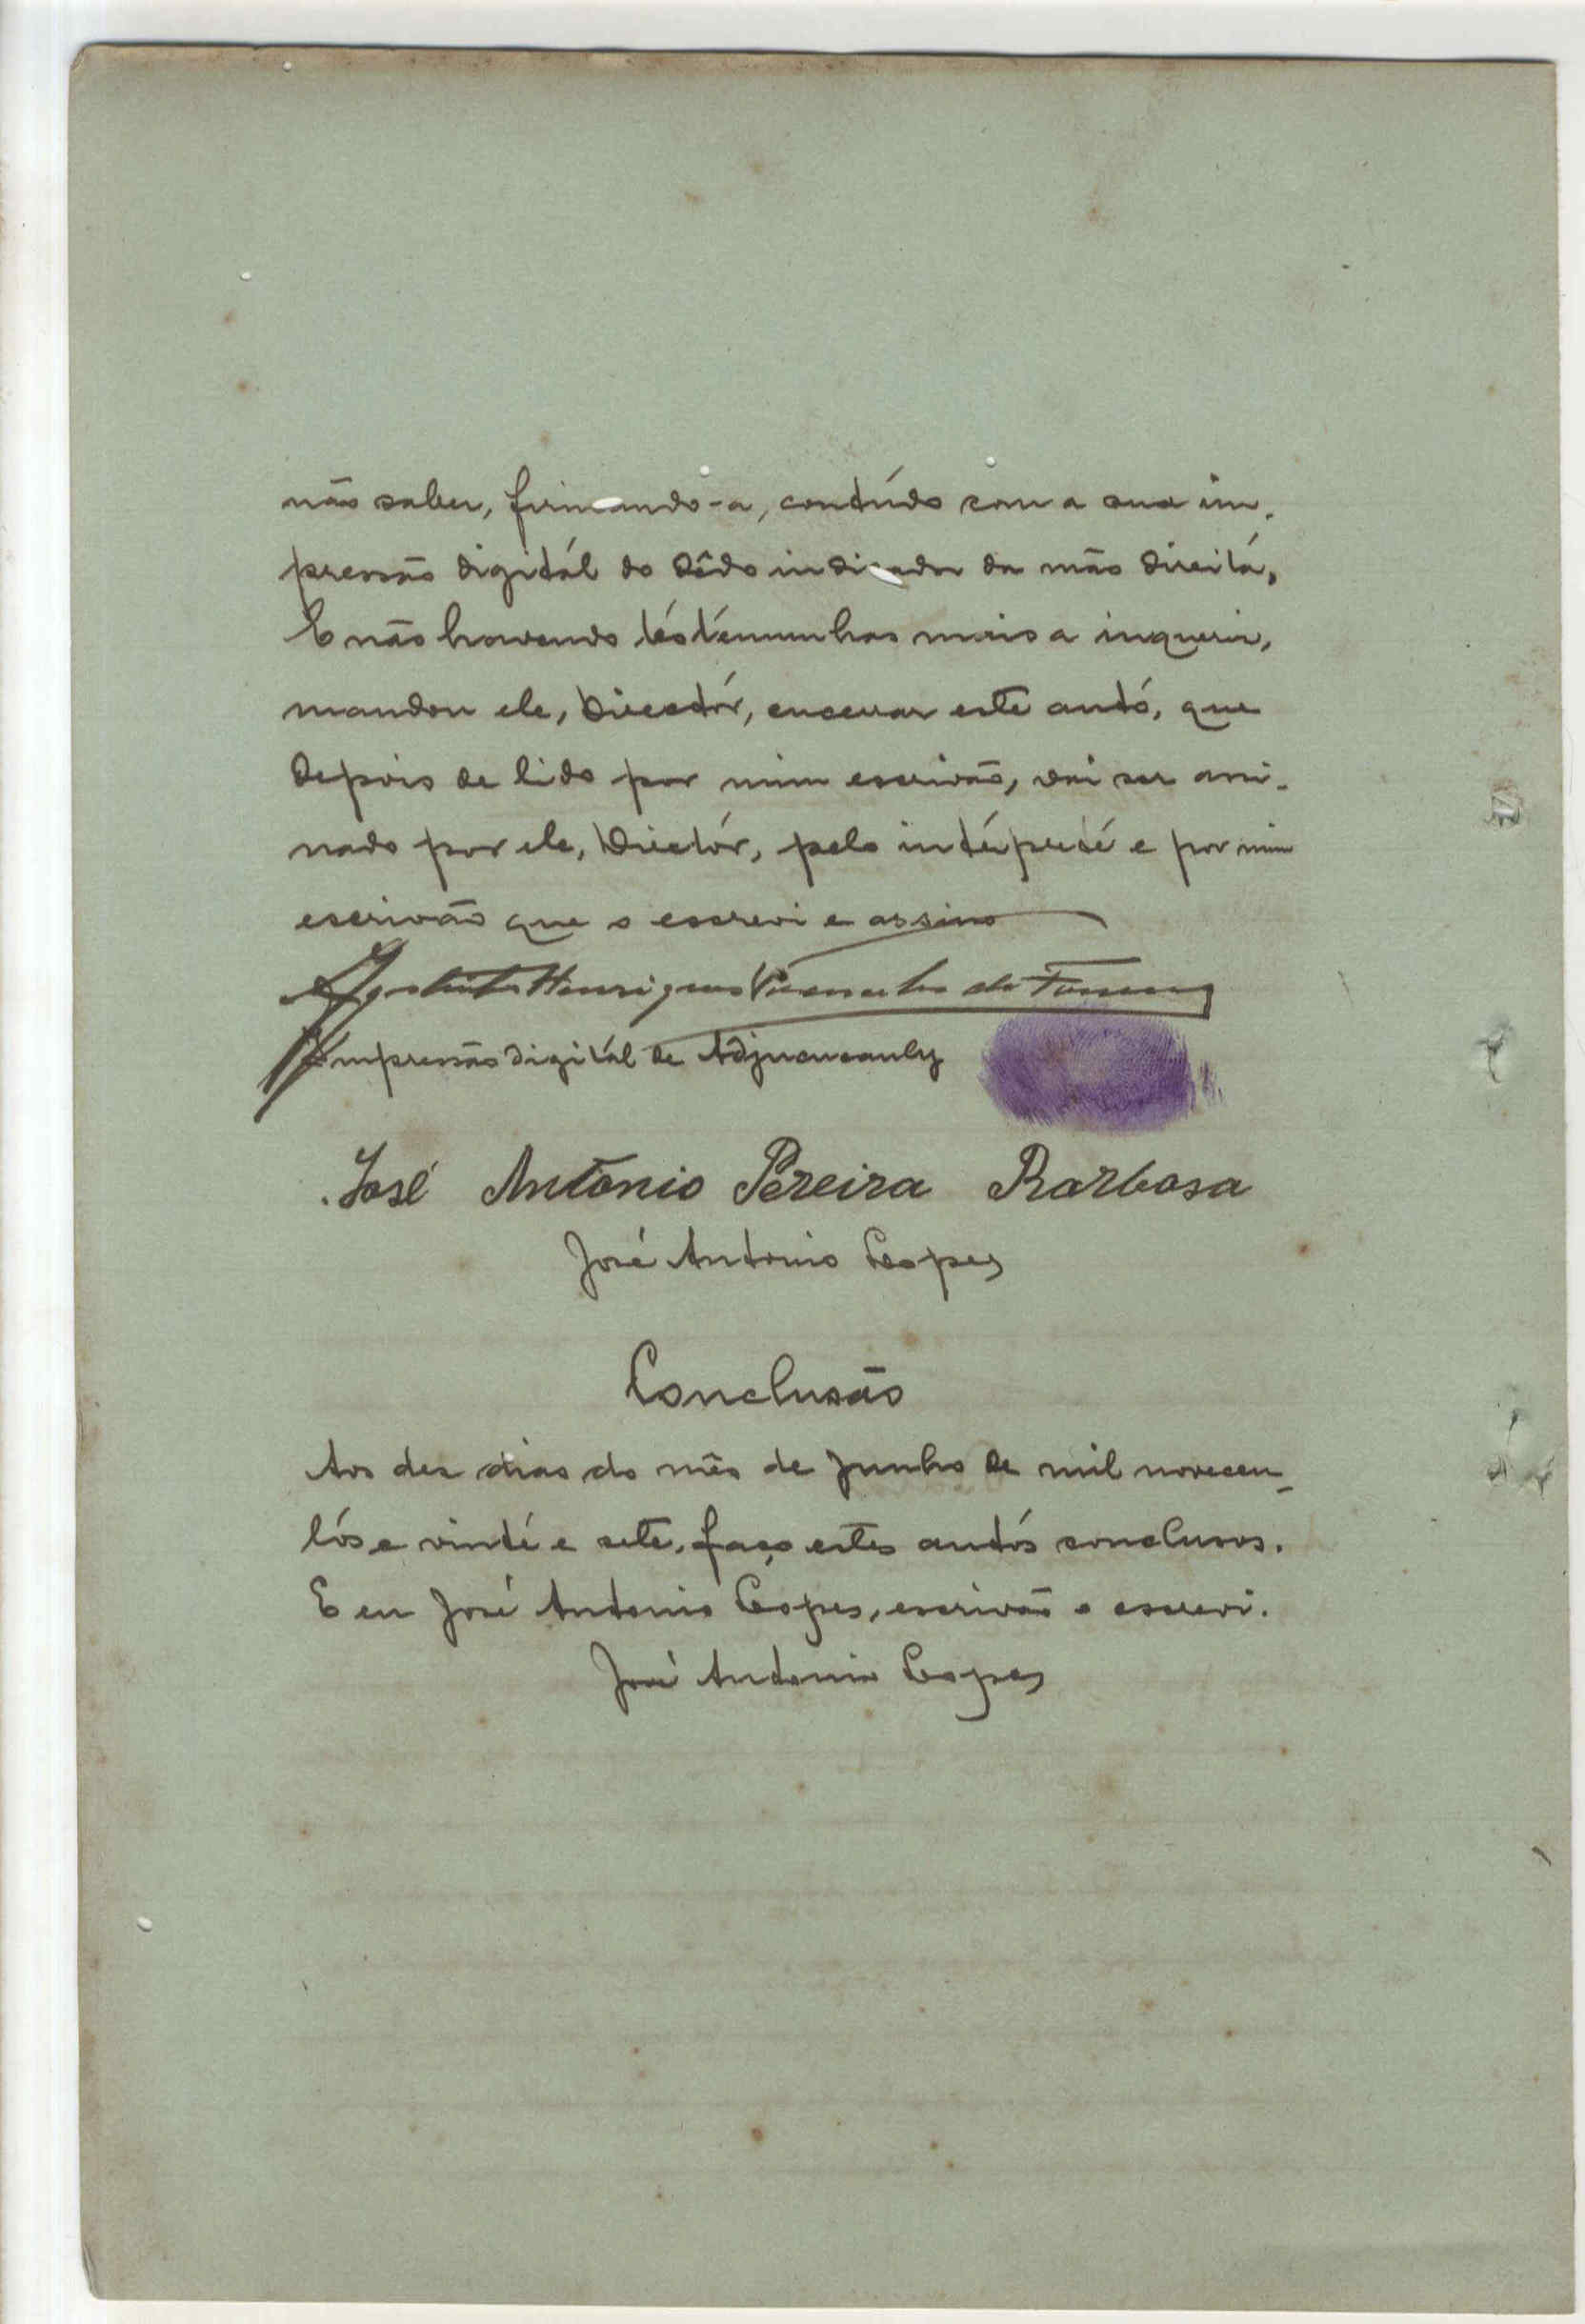 não saber, firmando-a, contúdo com a sua im-
pressão digitál do dêdo indicador da mão direitá,
E não havendo téstemunhas mais a inquerir,
mandou ele, Directór, encerrar este autó, que
depois de lido por mim escrivão, vai ser assi-
nado por ele, Directór, pelo intérpreté e por mim
escrivão que o escrevi e assino
Henriques de
Impressão digitál de
José António Pereira Barbosa
José Antonio Lopes
Conclusão
Aos dez dias do mês de Junho de mil novecen-
tós e vinté e sete, faço estes autós conclusos.
E eu José Antonio Lopes, escrivão o escrevi.
José Antonio Lopes